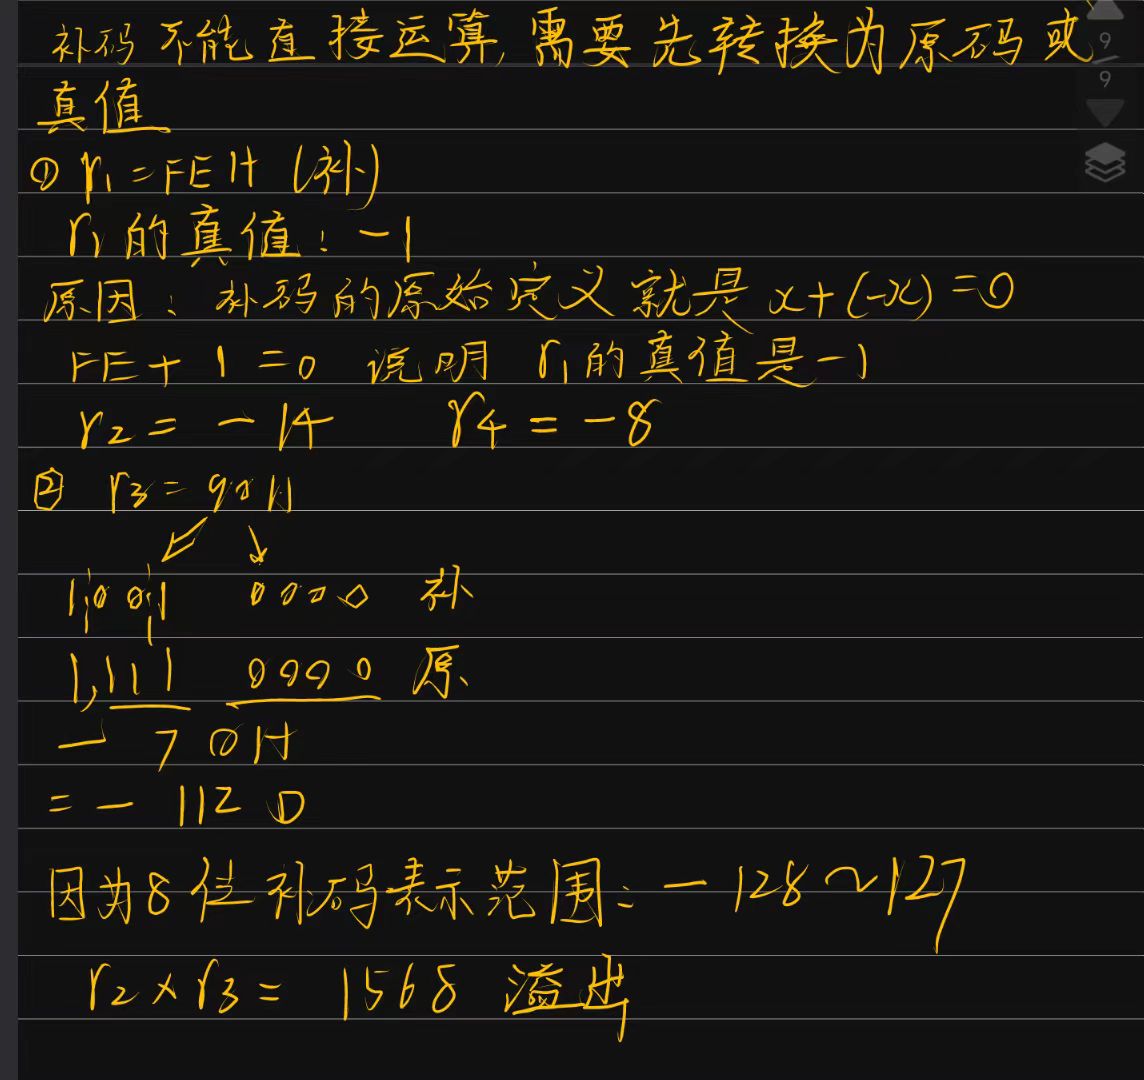 补码不能直接运算,需要先转换为原码或
真值
① r₁=FEH (补)
r₁的真值:-1
原因:补码的原始定义就是 x+(-x)=0
FE+1=0 说明 r₁的真值是-1
r₂=-14 r₄=-8
② r₃=90H
1001 0000 补
1,111 0000 原
- 70H
=-112D
因为8位补码表示范围:-128~127
r₂×r₃=1568 溢出
9
9